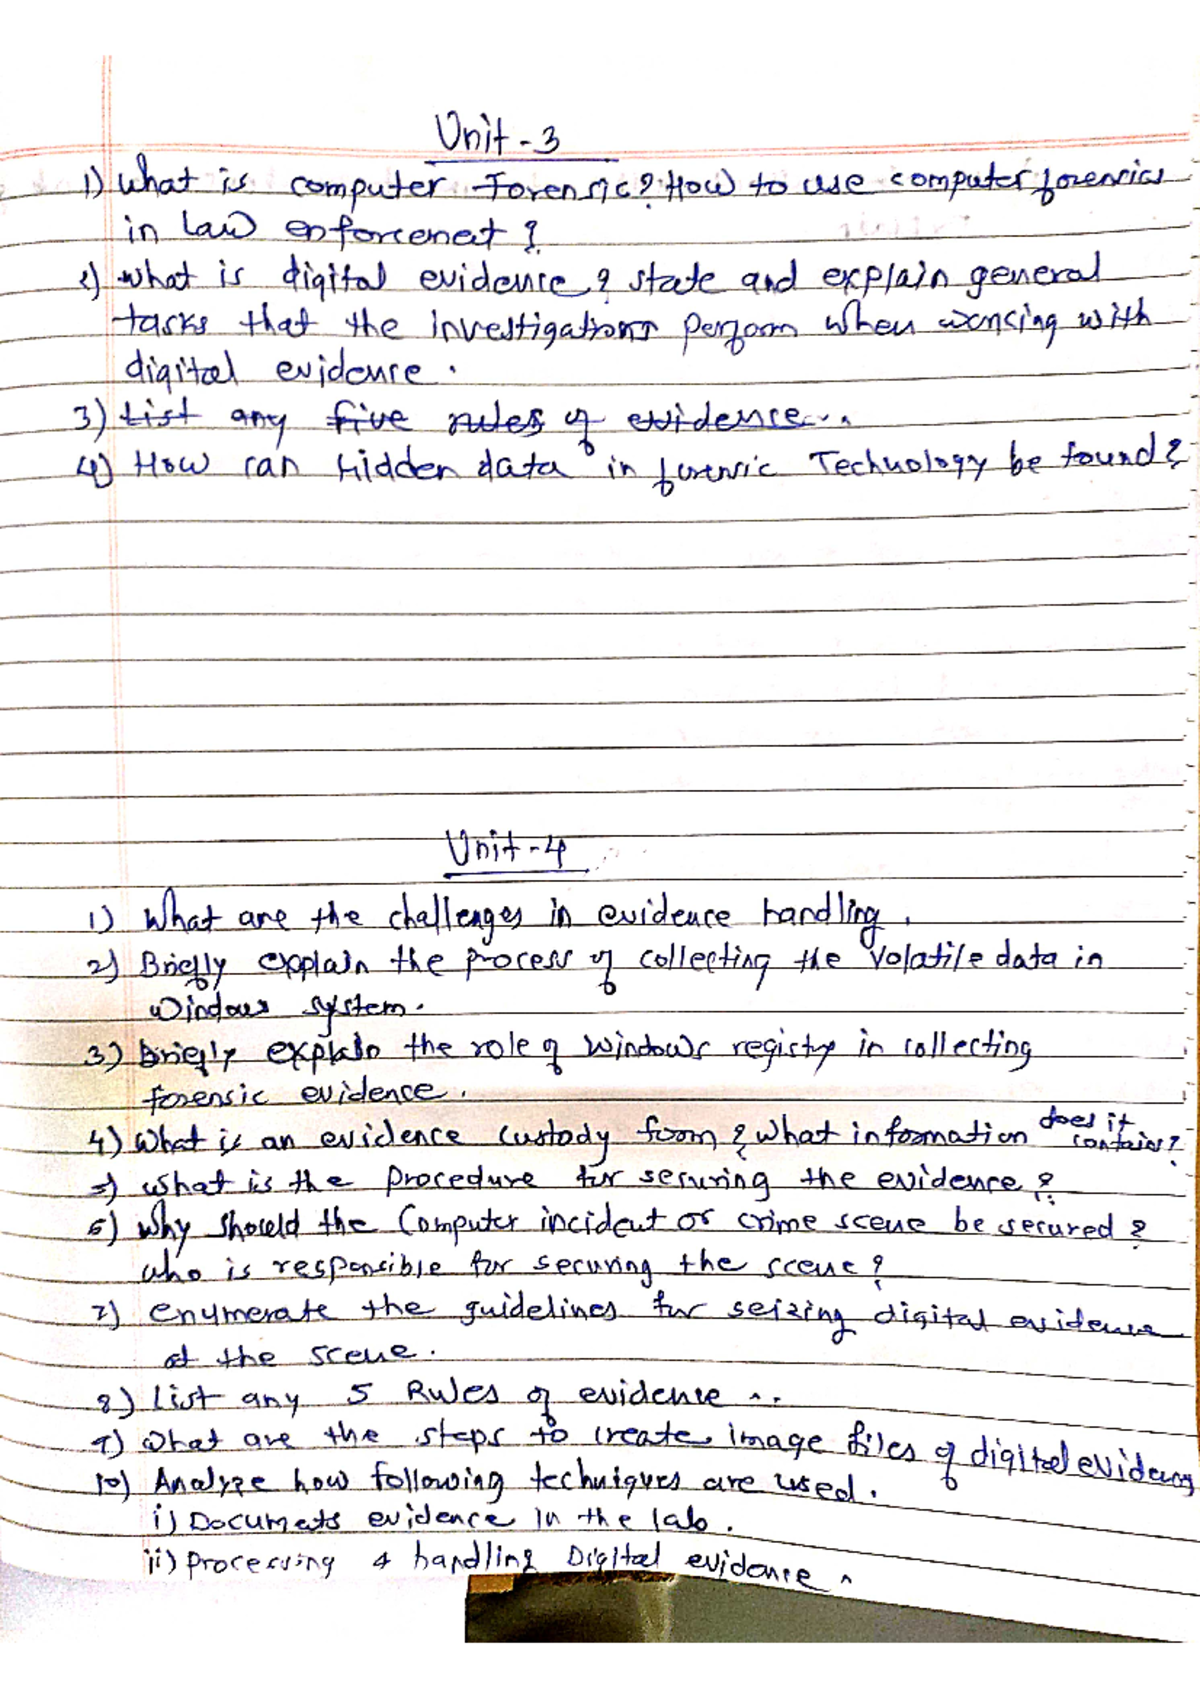 Unit - 3
1) What is computer Forensic? How to use computer forensics
in law enforcement?
2) What is digital evidence? state and explain general
tasks that the investigations perform when working with
digital evidence.
3) List any five rules of evidence...
4) How can hidden data in forensic Technology be found?
Unit - 4
1) What are the challenges in evidence handling.
2) Briefly explain the process of collecting the Volatile data in
windows system.
3) Briefly explain the role of Windows registry in collecting
forensic evidence.
4) What is an evidence custody form? what information does it contains?
5) What is the procedure for securing the evidence?
6) Why should the Computer incident or crime scene be secured?
who is responsible for securing the scene?
7) enumerate the guidelines for seizing digital evidence
at the scene.
8) List any 5 Rules of evidence ...
9) What are the steps to create image files of digital evidence
10) Analyze how following techniques are used.
i) Documets evidence in the lab.
ii) processing & handling Digital evidence.